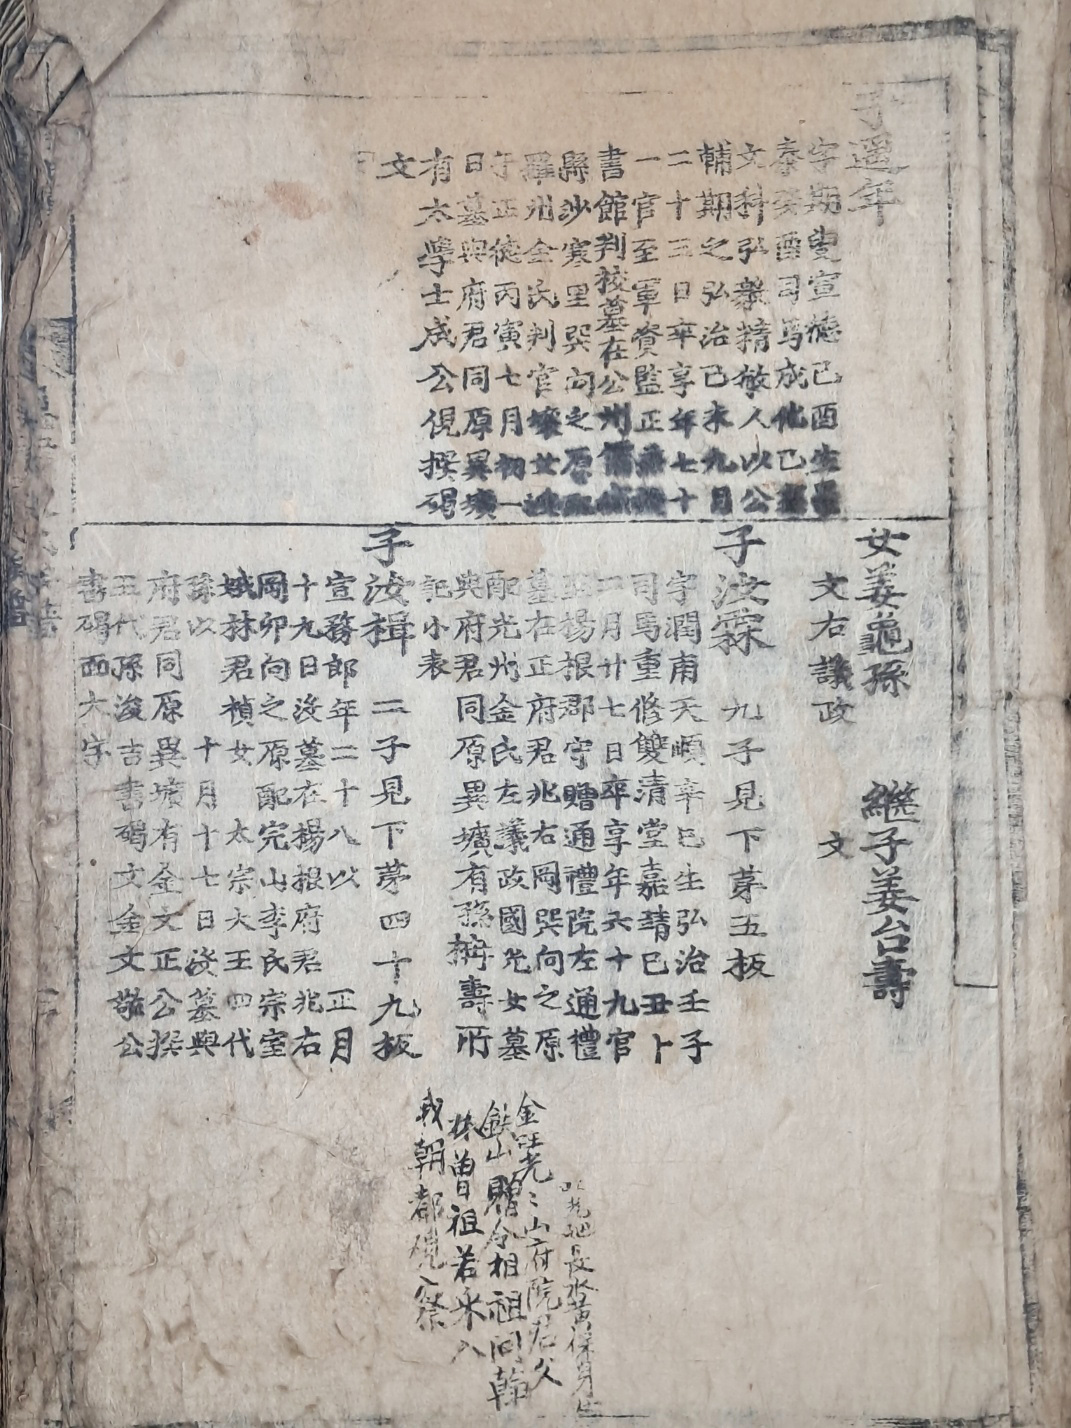 子遥年
字期叟宣德己酉生景
泰癸酉司馬成化己
文科弘毅精敏人以公
輔期之弘治己未九月
二十三日卒享年七十
一官至軍資監正兼
書館判校墓在公州儒
縣沙寒里巽向之原配
羅州金氏判官壤女
于正德丙寅七月初一
日墓與府君同原異壙
有太學士成公俔撰碣
文
女姜龜孫 繼子姜台壽
文右議政 文
子汝霖 九子見下茅五板
字潤甫天順辛巳生弘治壬子
司馬重修雙清堂嘉靖己丑卜
二月廿七日卒享年六十九官
至楊根郡守贈通禮院左通禮
墓在正府君兆右岡巽向之原
配光州金氏左議政國光女墓
與府君同原異壙有孫楠壽所
記小表
子汝楫 二子見下茅四十九板
宣務郎年二十八以 正月
十九日沒墓在楊根府君兆右
岡卯向之原配完山李氏宗室
娥林君楨女 太宗大王四代
孫以 十月十七日沒墓與
府君同原異壙有金文正公撰
五代孫浚吉書碣文金文敬公
書碣面大字
長水黃保身
金國光光山府院君父
鉄山贈令相祖同
叅曾祖若采入
我朝都觀察